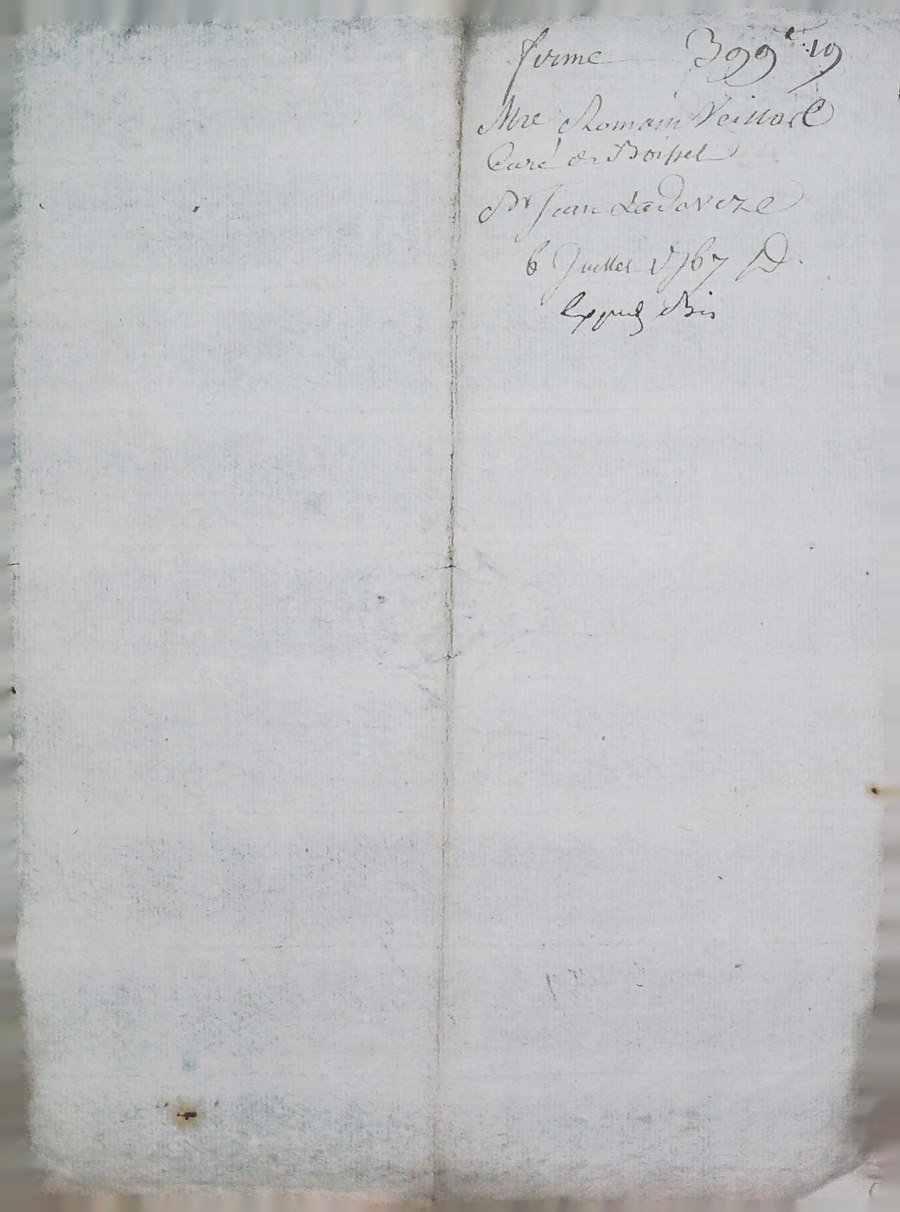 ferme 399# 19
Mre Romain Veillard
Curé de Boisset
Sr Jean Ladaveze
6 Juillet 1767
bis